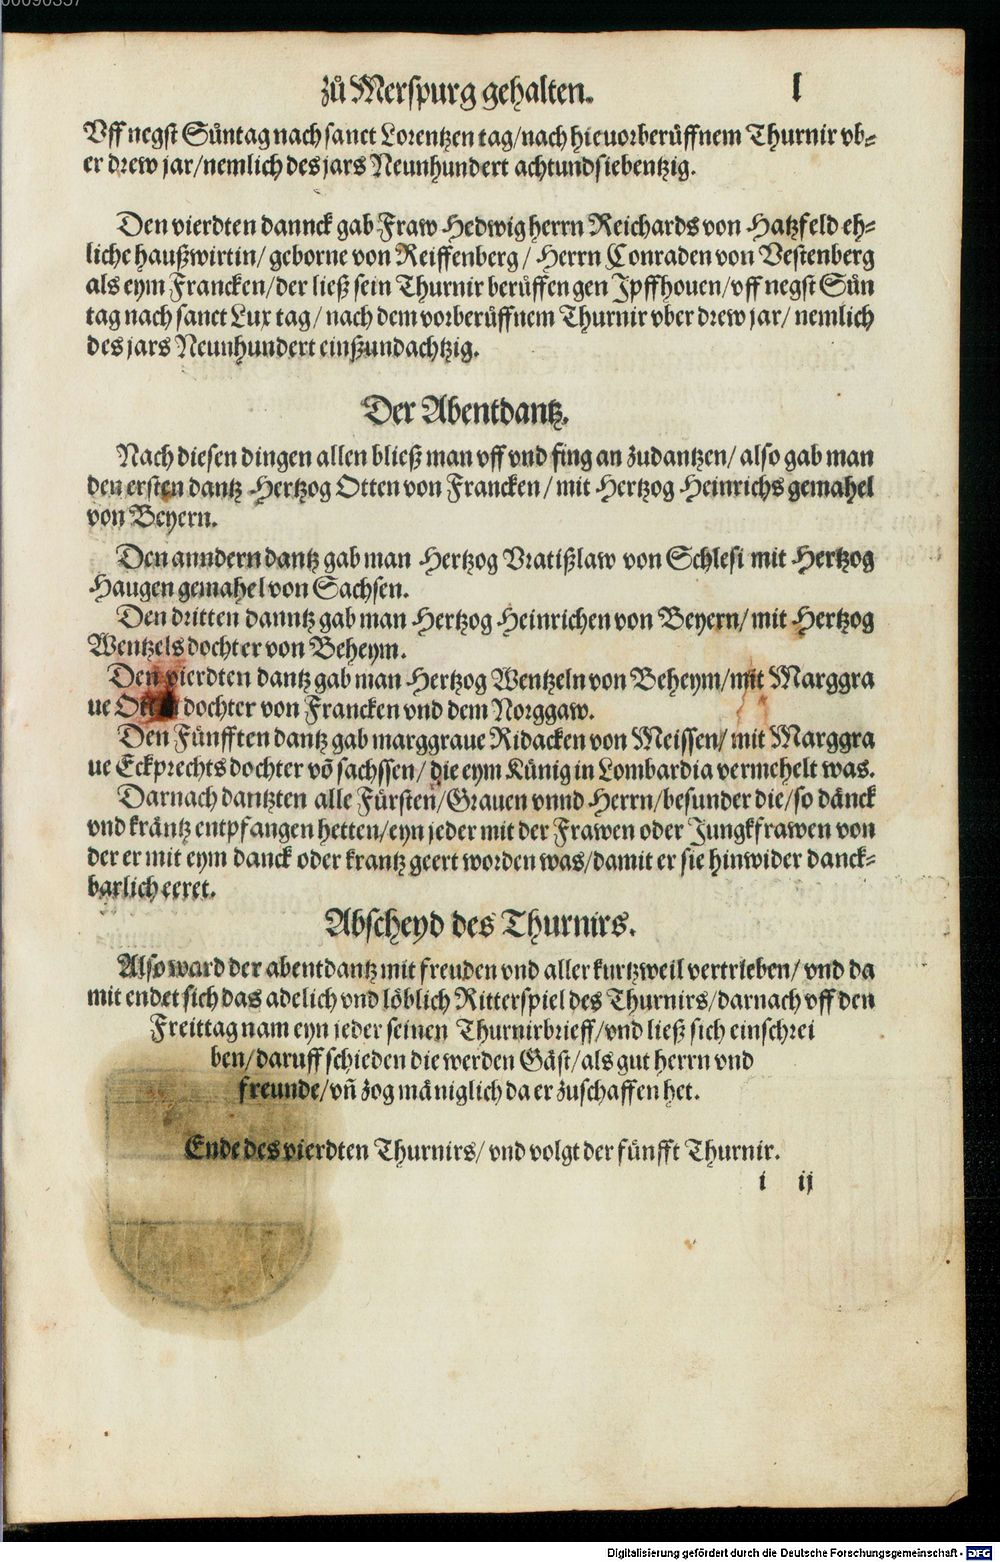 00090357
zů Merspurg gehalten. l
Vff negst Sůntag nach sanct Lorentzen tag/nach hieuorberůffnem Thurnir vb⸗
er drew jar/nemlich des jars Neunhundert achtundsiebentzig.
Den vierdten dannck gab Fraw Hedwig herrn Reichards von Hatzfeld eh⸗
liche haußwirtin/ geborne von Reiffenberg/ Herrn Conraden von Vestenberg
als eym Francken/der ließ sein Thurnir berůffen gen Jpffhouen/vff negst Sůn
tag nach sanct Lux tag/ nach dem vorberůffnem Thurnir vber drew jar/ nemlich
des jars Neunhundert einßundachtzig.
Der Abentdantz.
Nach diesen dingen allen bließ man vff vnd fing an zudantzen/ also gab man
den ersten dantz Hertzog Otten von Francken/ mit Hertzog Heinrichs gemahel
von Beyern.
Den anndern dantz gab man Hertzog Vratißlaw von Schlesi mit Hertzog
Haugen gemahel von Sachsen.
Den dritten danntz gab man Hertzog Heinrichen von Beyern/ mit Hertzog
Wentzels dochter von Beheym.
Den vierdten dantz gab man Hertzog Wentzeln von Beheym/mit Marggra
ue dochter von Francken vnd dem Norggaw.
Den Fünfften dantz gab marggraue Ridacken von Meissen/ mit Marggra
ue Eckprechts dochter võ sachssen/ die eym Künig in Lombardia vermehelt was.
Darnach dantzten alle Fürsten/Grauen vnnd Herrn/besunder die/so dänck
vnd kräntz entpfangen hetten/eyn jeder mit der Frawen oder Jungkfrawen von
der er mit eym danck oder krantz geert worden was/damit er sie hinwider danck⸗
barlich eeret.
Abscheyd des Thurnirs.
Also ward der abentdantz mit freuden vnd aller kurtzweil vertrieben/ vnd da
mit endet sich das adelich vnd löblich Ritterspiel des Thurnirs/darnach vff den
Freittag nam eyn jeder seinen Thurnirbrieff/vnd ließ sich einschrei
ben/daruff schieden die werden Gäst/als gut herrn vnd
freunde/vñ zog mäniglich da er zuschaffen het.
Ende des vierdten Thurnirs/ vnd volgt der fünfft Thurnir.
i ij
Digitalisierung gefördert durch die Deutsche Forschungsgemeinschaft - DFG